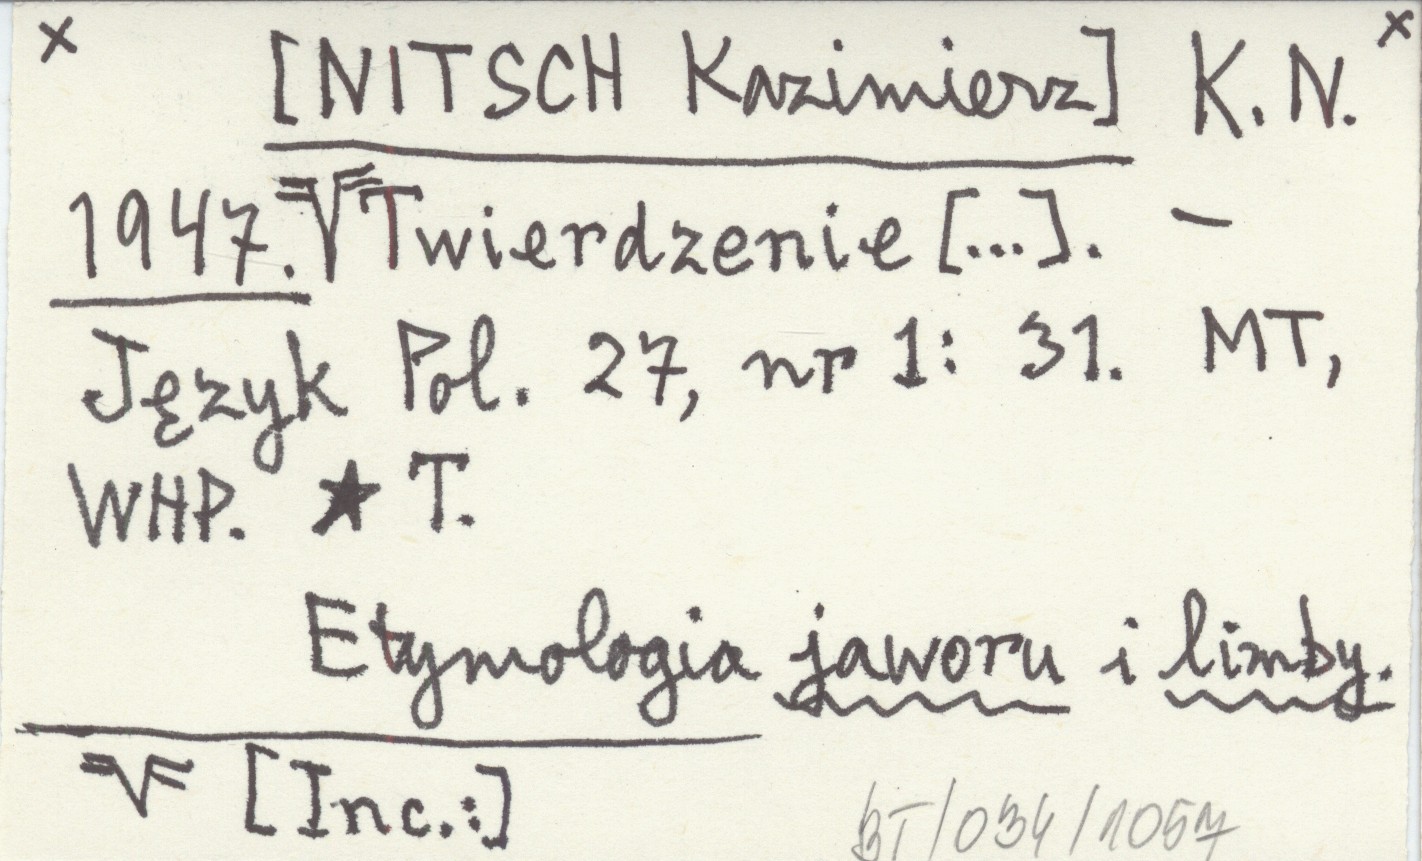 x [NITSCH Kazimierz] K. N. x
1947. Twierdzenie [...]. –
Język Pol. 27, nr 1: 31. MT,
WHP. ★ T.
Etymologia jaworu i limby.
[Inc.:]
BT/034/1057